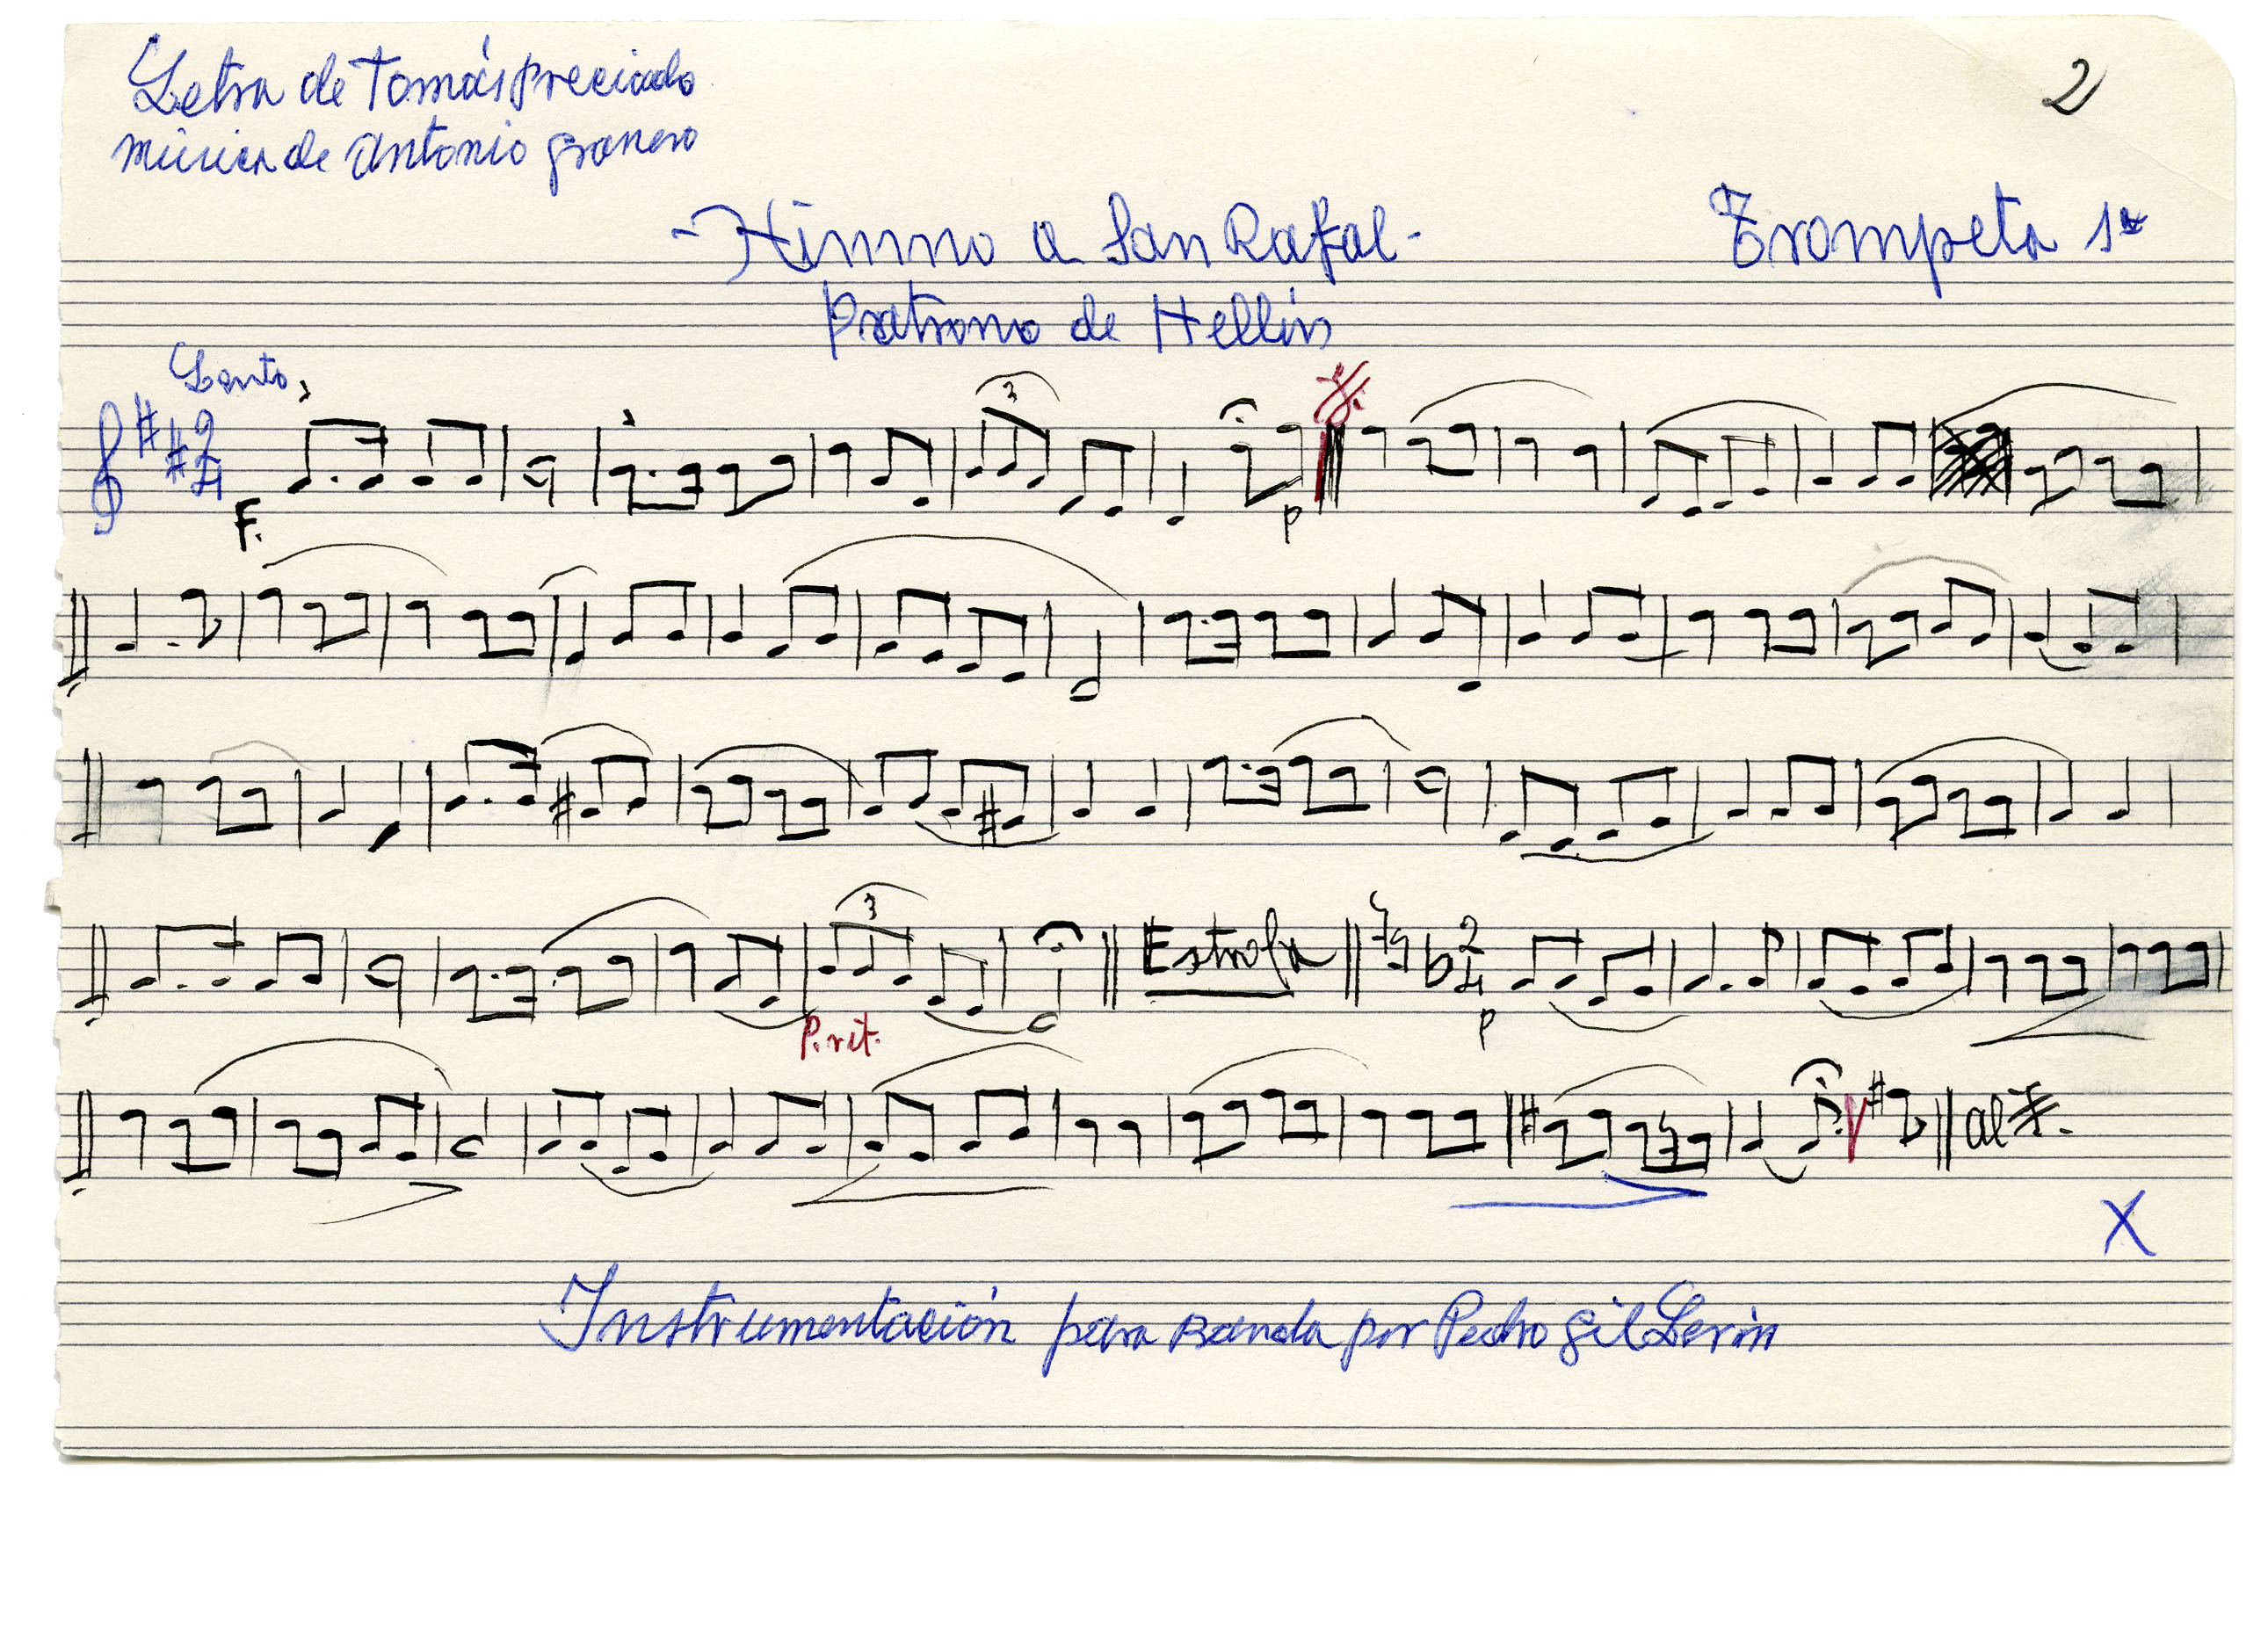 Letra de Tomás Preciado
2
música de Antonio Granero
- Himno a San Rafael -
Trompeta 1ª
Patrono de Hellín
Lento
2
4
3
F.
p
3
P. rit.
Estrofa
2
4
p
al
X
Instrumentación para Banda por Pedro Gil Lerín